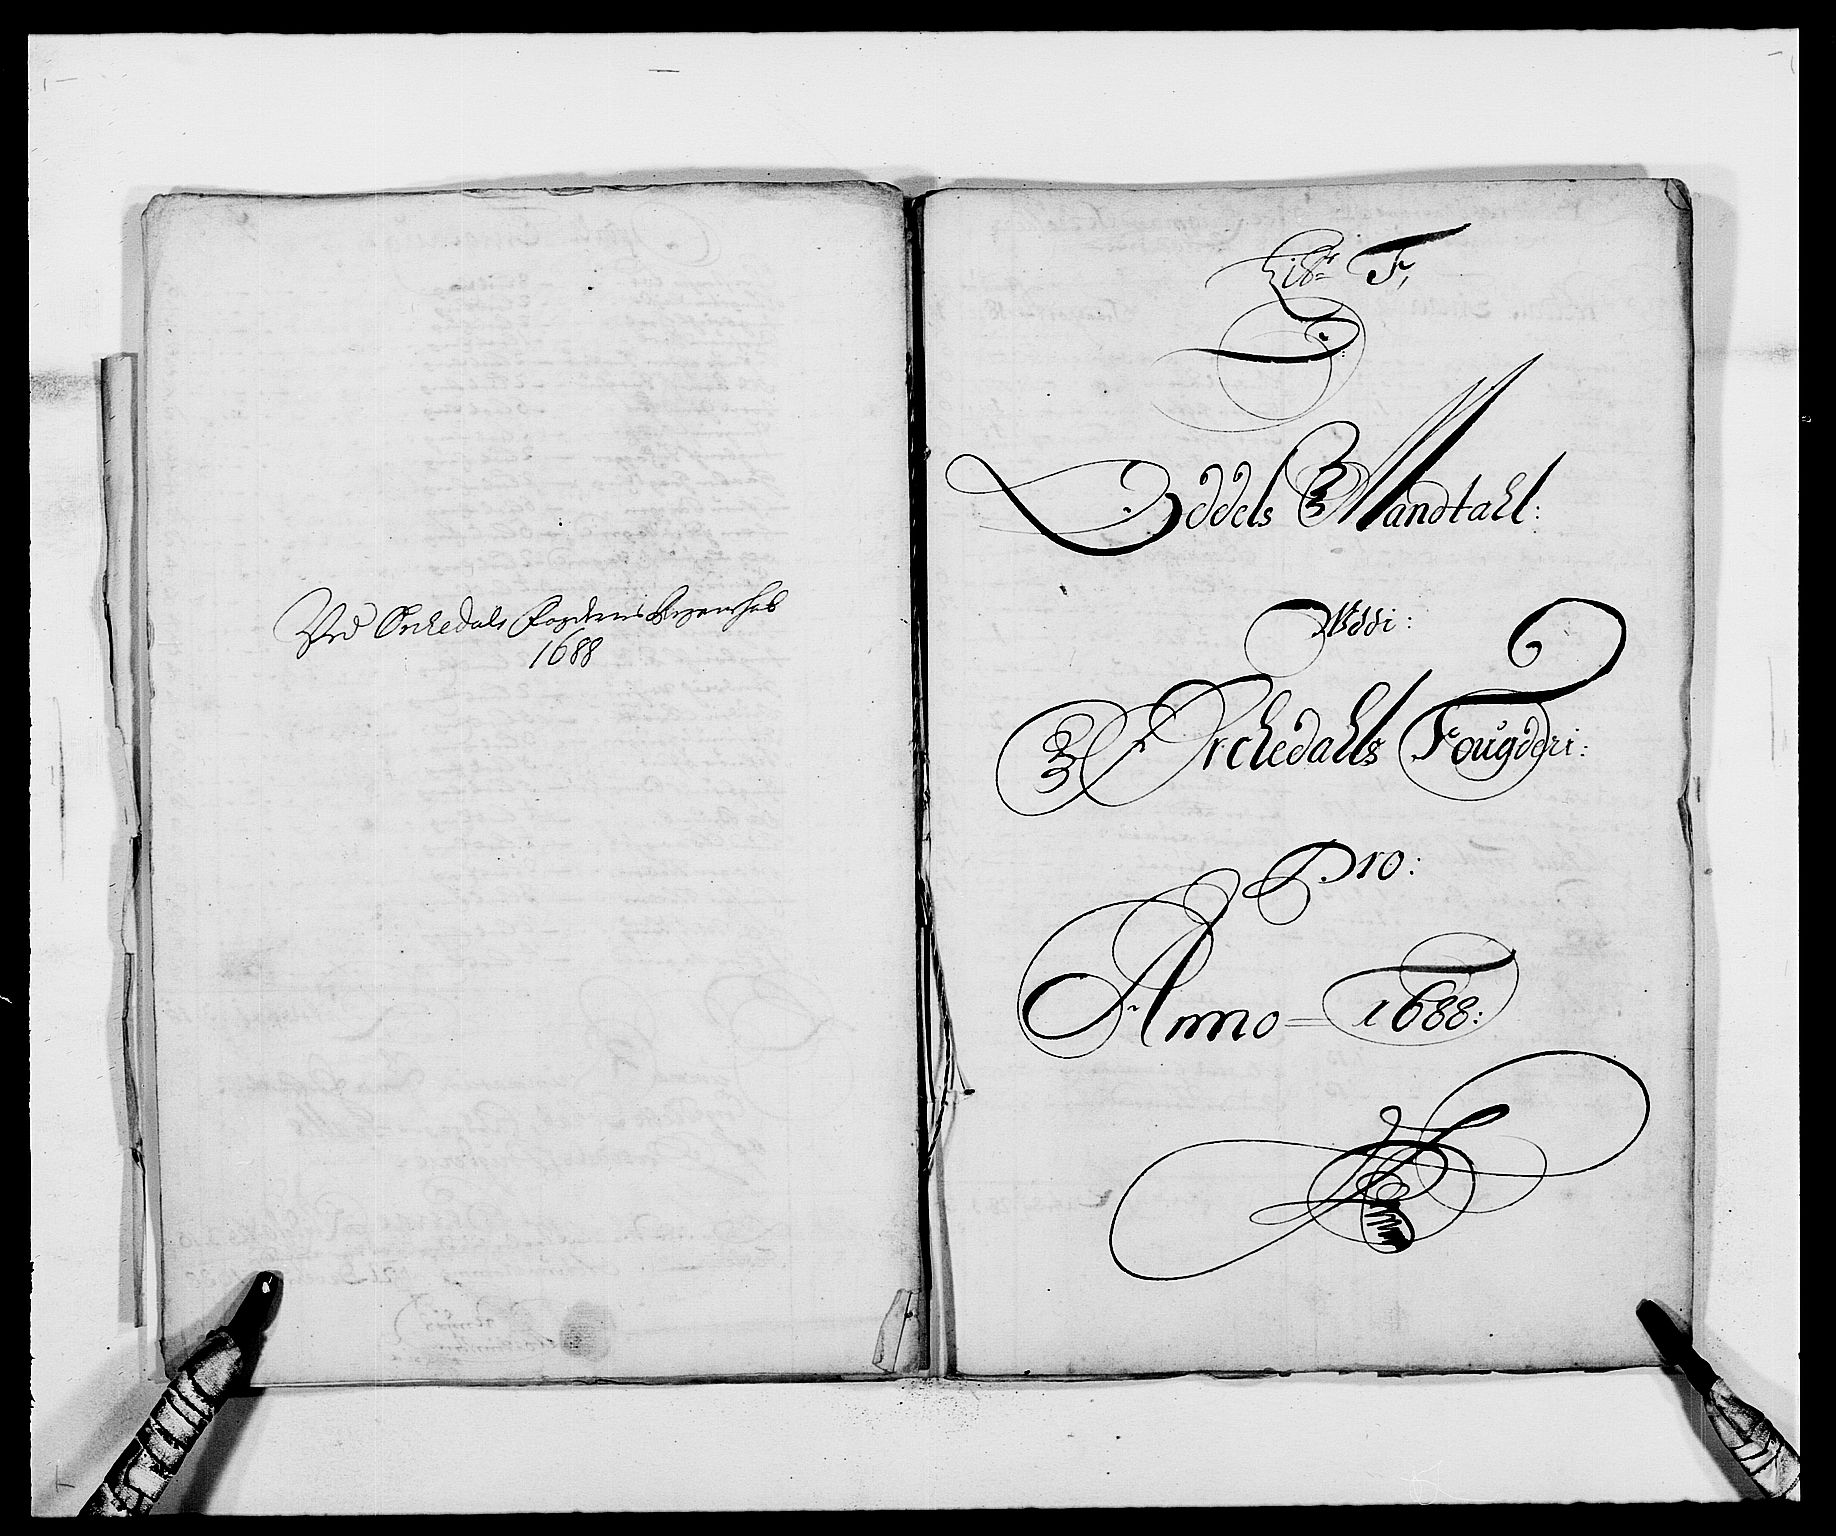 Ved Orchedals Fogderis Regenschab
1688
Litr F,
Oddels Mandtahl:
Uddi:
Orchedahls Fougderi:
Pro:
Anno = 1688: